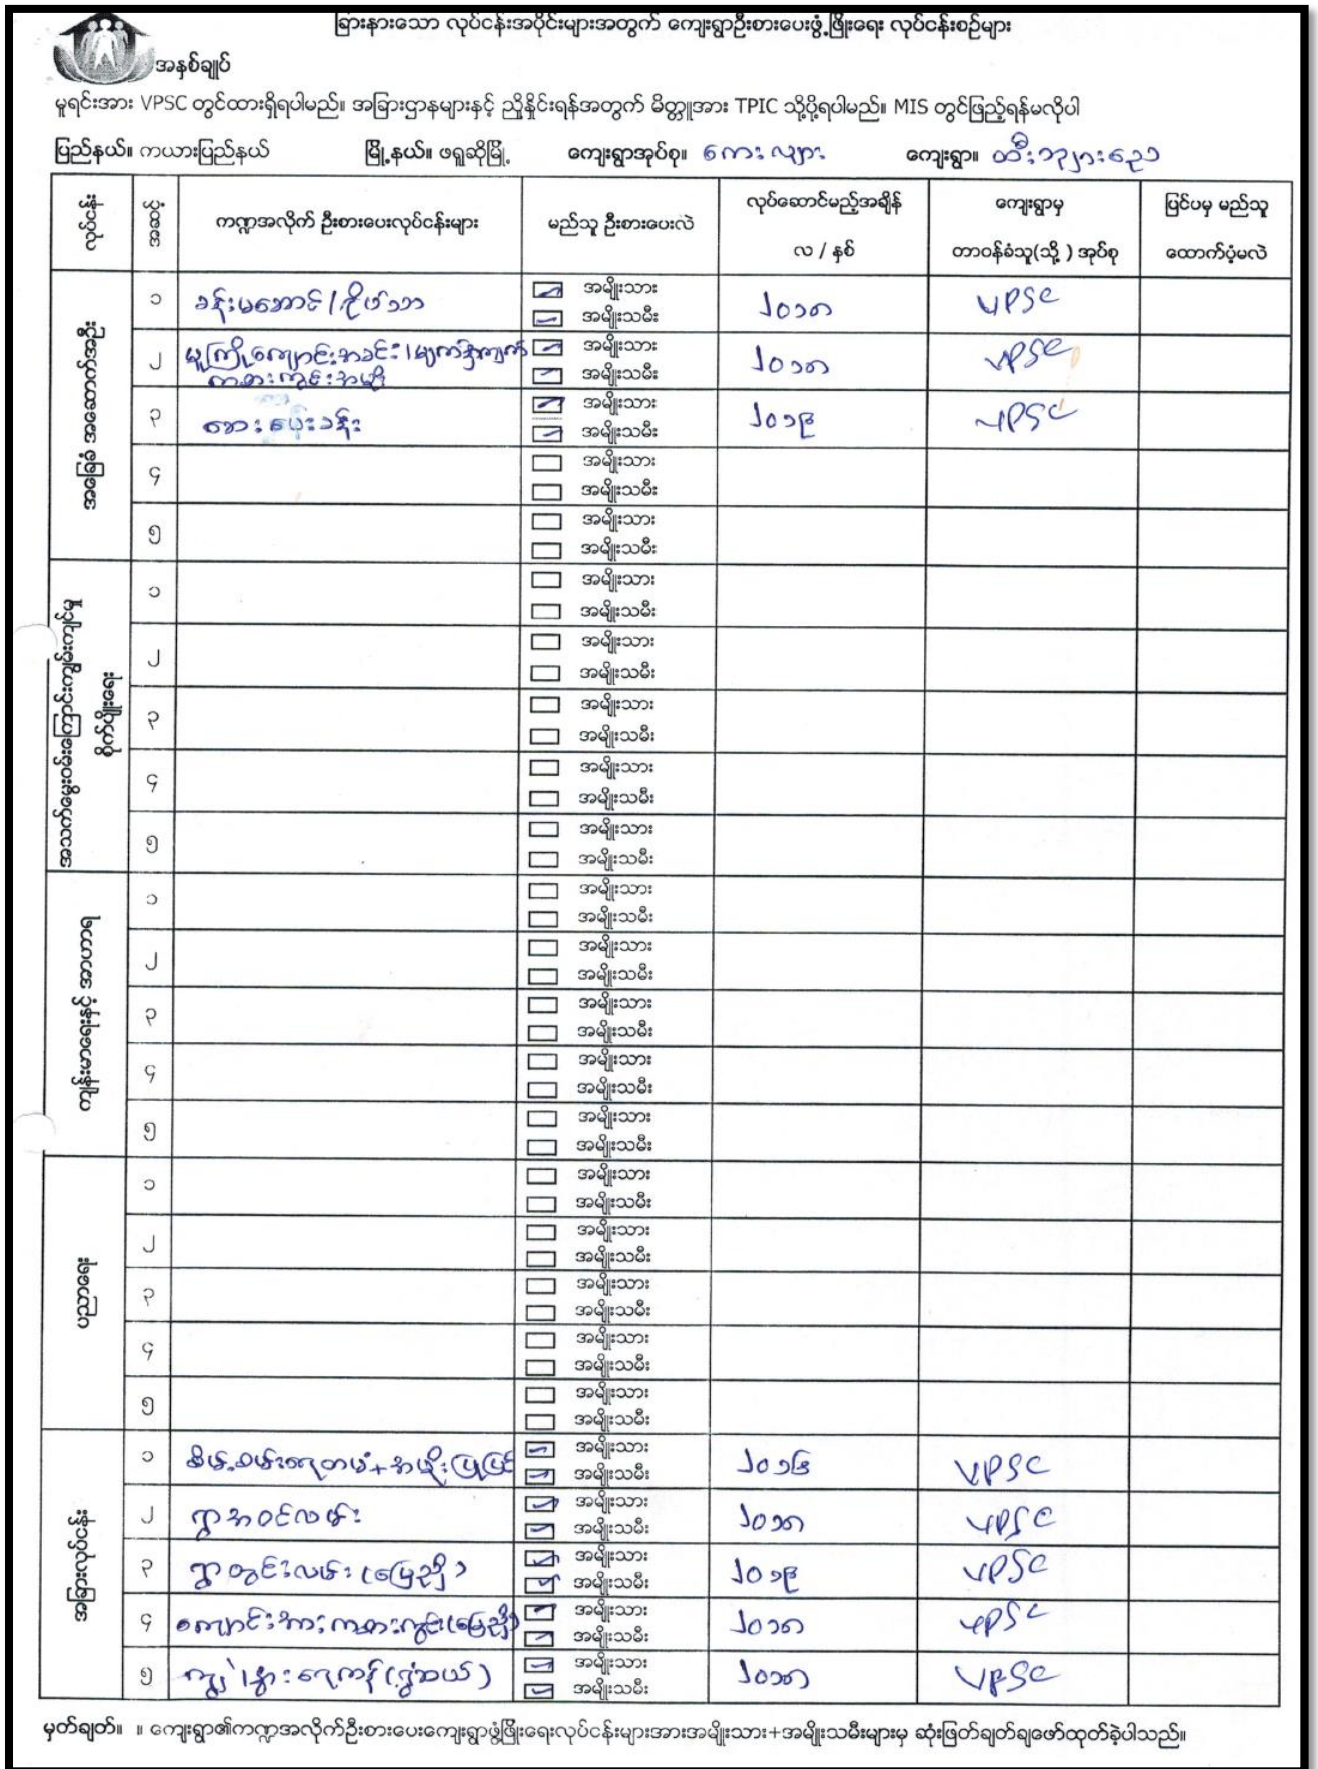 ခြားနားသော လုပ်ငန်းအပိုင်းများအတွက် ကျေးရွာဦးစားပေးဖွံ့ဖြိုးရေး လုပ်ငန်းစဉ်များ
အနှစ်ချုပ်
မူရင်းအား VPSC တွင်ထားရှိရပါမည်။ အခြားဌာနများနှင့် ညှိနှိုင်းရန်အတွက် မိတ္တူအား TPIC သို့ပို့ရပါမည်။ MIS တွင်ဖြည့်ရန်မလိုပါ
ပြည်နယ်။ ကယားပြည်နယ် မြို့နယ်။ ဖရူဆိုမြို့ ကျေးရွာအုပ်စု။ ကေးလျား ကျေးရွာ။
လုပ်ငန်း အစဉ် ကဏ္ဍအလိုက် ဦးစားပေးလုပ်ငန်းများ မည်သူ ဦးစားပေးလဲ လုပ်ဆောင်မည့်အချိန် လ / နှစ် ကျေးရွာမှ တာဝန်ခံသူ(သို့ ) အုပ်စု ပြင်ပမှ မည်သူ ထောက်ပံ့မလဲ
အခြေခံ အဆောက်အဦး
၁ ခန်းမဆောင် အမျိုးသား အမျိုးသမီး ၂၀၁၈ VPSC
၂ မူကြိုကျောင်း အမျိုးသား အမျိုးသမီး ၂၀၁၈ VPSC
၃ ဆေးပေးခန်း အမျိုးသား အမျိုးသမီး ၂၀၁၉ VPSC
၄ အမျိုးသား အမျိုးသမီး
၅ အမျိုးသား အမျိုးသမီး
အသက်မွေးဝမ်းကျောင်း စိုက်ပျိုးရေး
၁ အမျိုးသား အမျိုးသမီး
၂ အမျိုးသား အမျိုးသမီး
၃ အမျိုးသား အမျိုးသမီး
၄ အမျိုးသား အမျိုးသမီး
၅ အမျိုးသား အမျိုးသမီး
ကျန်းမာရေးနှင့် အာဟာရ
၁ အမျိုးသား အမျိုးသမီး
၂ အမျိုးသား အမျိုးသမီး
၃ အမျိုးသား အမျိုးသမီး
၄ အမျိုးသား အမျိုးသမီး
၅ အမျိုးသား အမျိုးသမီး
ပညာရေး
၁ အမျိုးသား အမျိုးသမီး
၂ အမျိုးသား အမျိုးသမီး
၃ အမျိုးသား အမျိုးသမီး
၄ အမျိုးသား အမျိုးသမီး
၅ အမျိုးသား အမျိုးသမီး
အခြားလုပ်ငန်း
၁ စိမ့်စမ်းရေ အမျိုးသား အမျိုးသမီး ၂၀၁၆ VPSC
၂ ရွာအဝင်လမ်း အမျိုးသား အမျိုးသမီး ၂၀၁၈ VPSC
၃ ရွာတွင်းလမ်း (မြေညှိ) အမျိုးသား အမျိုးသမီး ၂၀၁၉ VPSC
၄ ကျောင်းအားကစားကွင်း(မြေညှိ) အမျိုးသား အမျိုးသမီး ၂၀၁၈ VPSC
၅ ကျွဲ၊နွားရေကန် အမျိုးသား အမျိုးသမီး ၂၀၁၈ VPSC
မှတ်ချတ်။ ။ ကျေးရွာ၏ကဏ္ဍအလိုက်ဦးစားပေးကျေးရွာဖွံ့ဖြိုးရေးလုပ်ငန်းများအားအမျိုးသား+အမျိုးသမီးများမှ ဆုံးဖြတ်ချတ်ချဖော်ထုတ်ခဲ့ပါသည်။